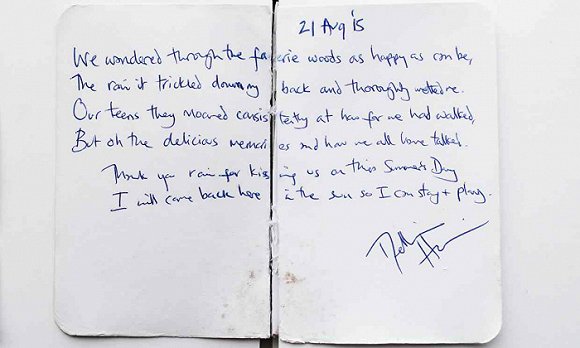 21 Aug 15
We wondered through the faerie woods as happy as can be,
The rain it trickled down my back and thoroughly wetted me.
Our teens they moaned consistently at how far we had walked,
But oh the delicious memories and how we all have talked.
Thank you rain for kissing us on this Summer's Day
I will come back here in the sun so I can stay + play.